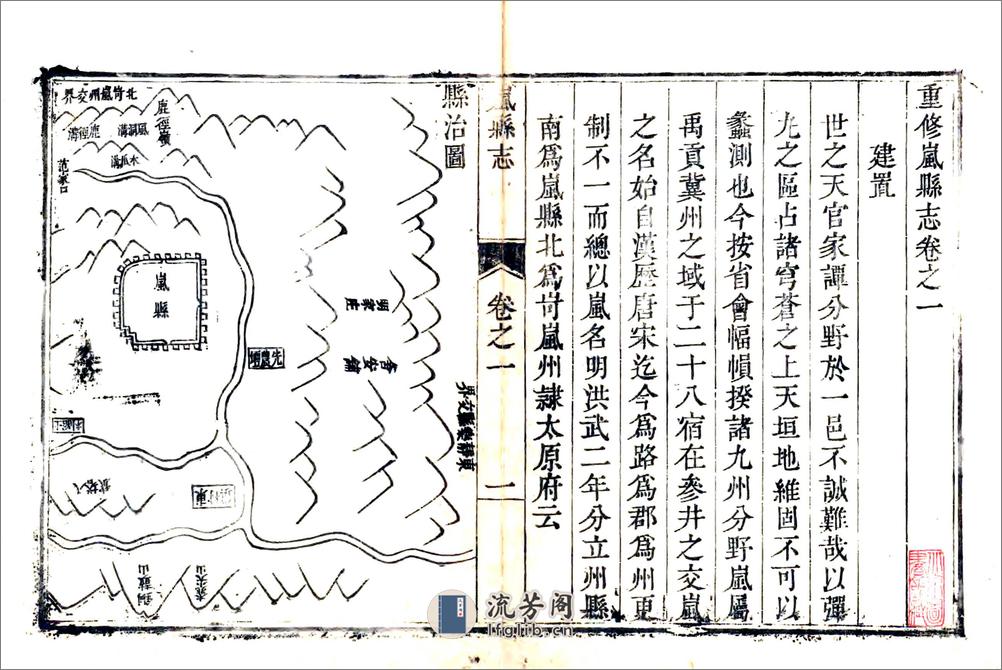 重修嵐縣志卷之一
建置
世之天官家譚分野於一邑不誠難哉以彈
九之區占諸穹蒼之上天垣地維固不可以
蠡測也今按省會幅幀揆諸九州分野嵐屬
禹貢冀州之域于二十八宿在參井之交嵐
之名始自漢歷唐宋迄今爲路爲郡爲州更
制不一而總以嵐名明洪武二年分立州縣
南爲嵐縣北爲岢嵐州隸太原府云
嵐縣志
卷之一
一
縣治圖
東靜樂縣交界
明家庄
會安鋪
先農壇
鹿徑嶺
北岢嵐州交界
鹿徑溝
水泒溝
嵐縣
銅鼓山
流芳阁
lfglib.cn